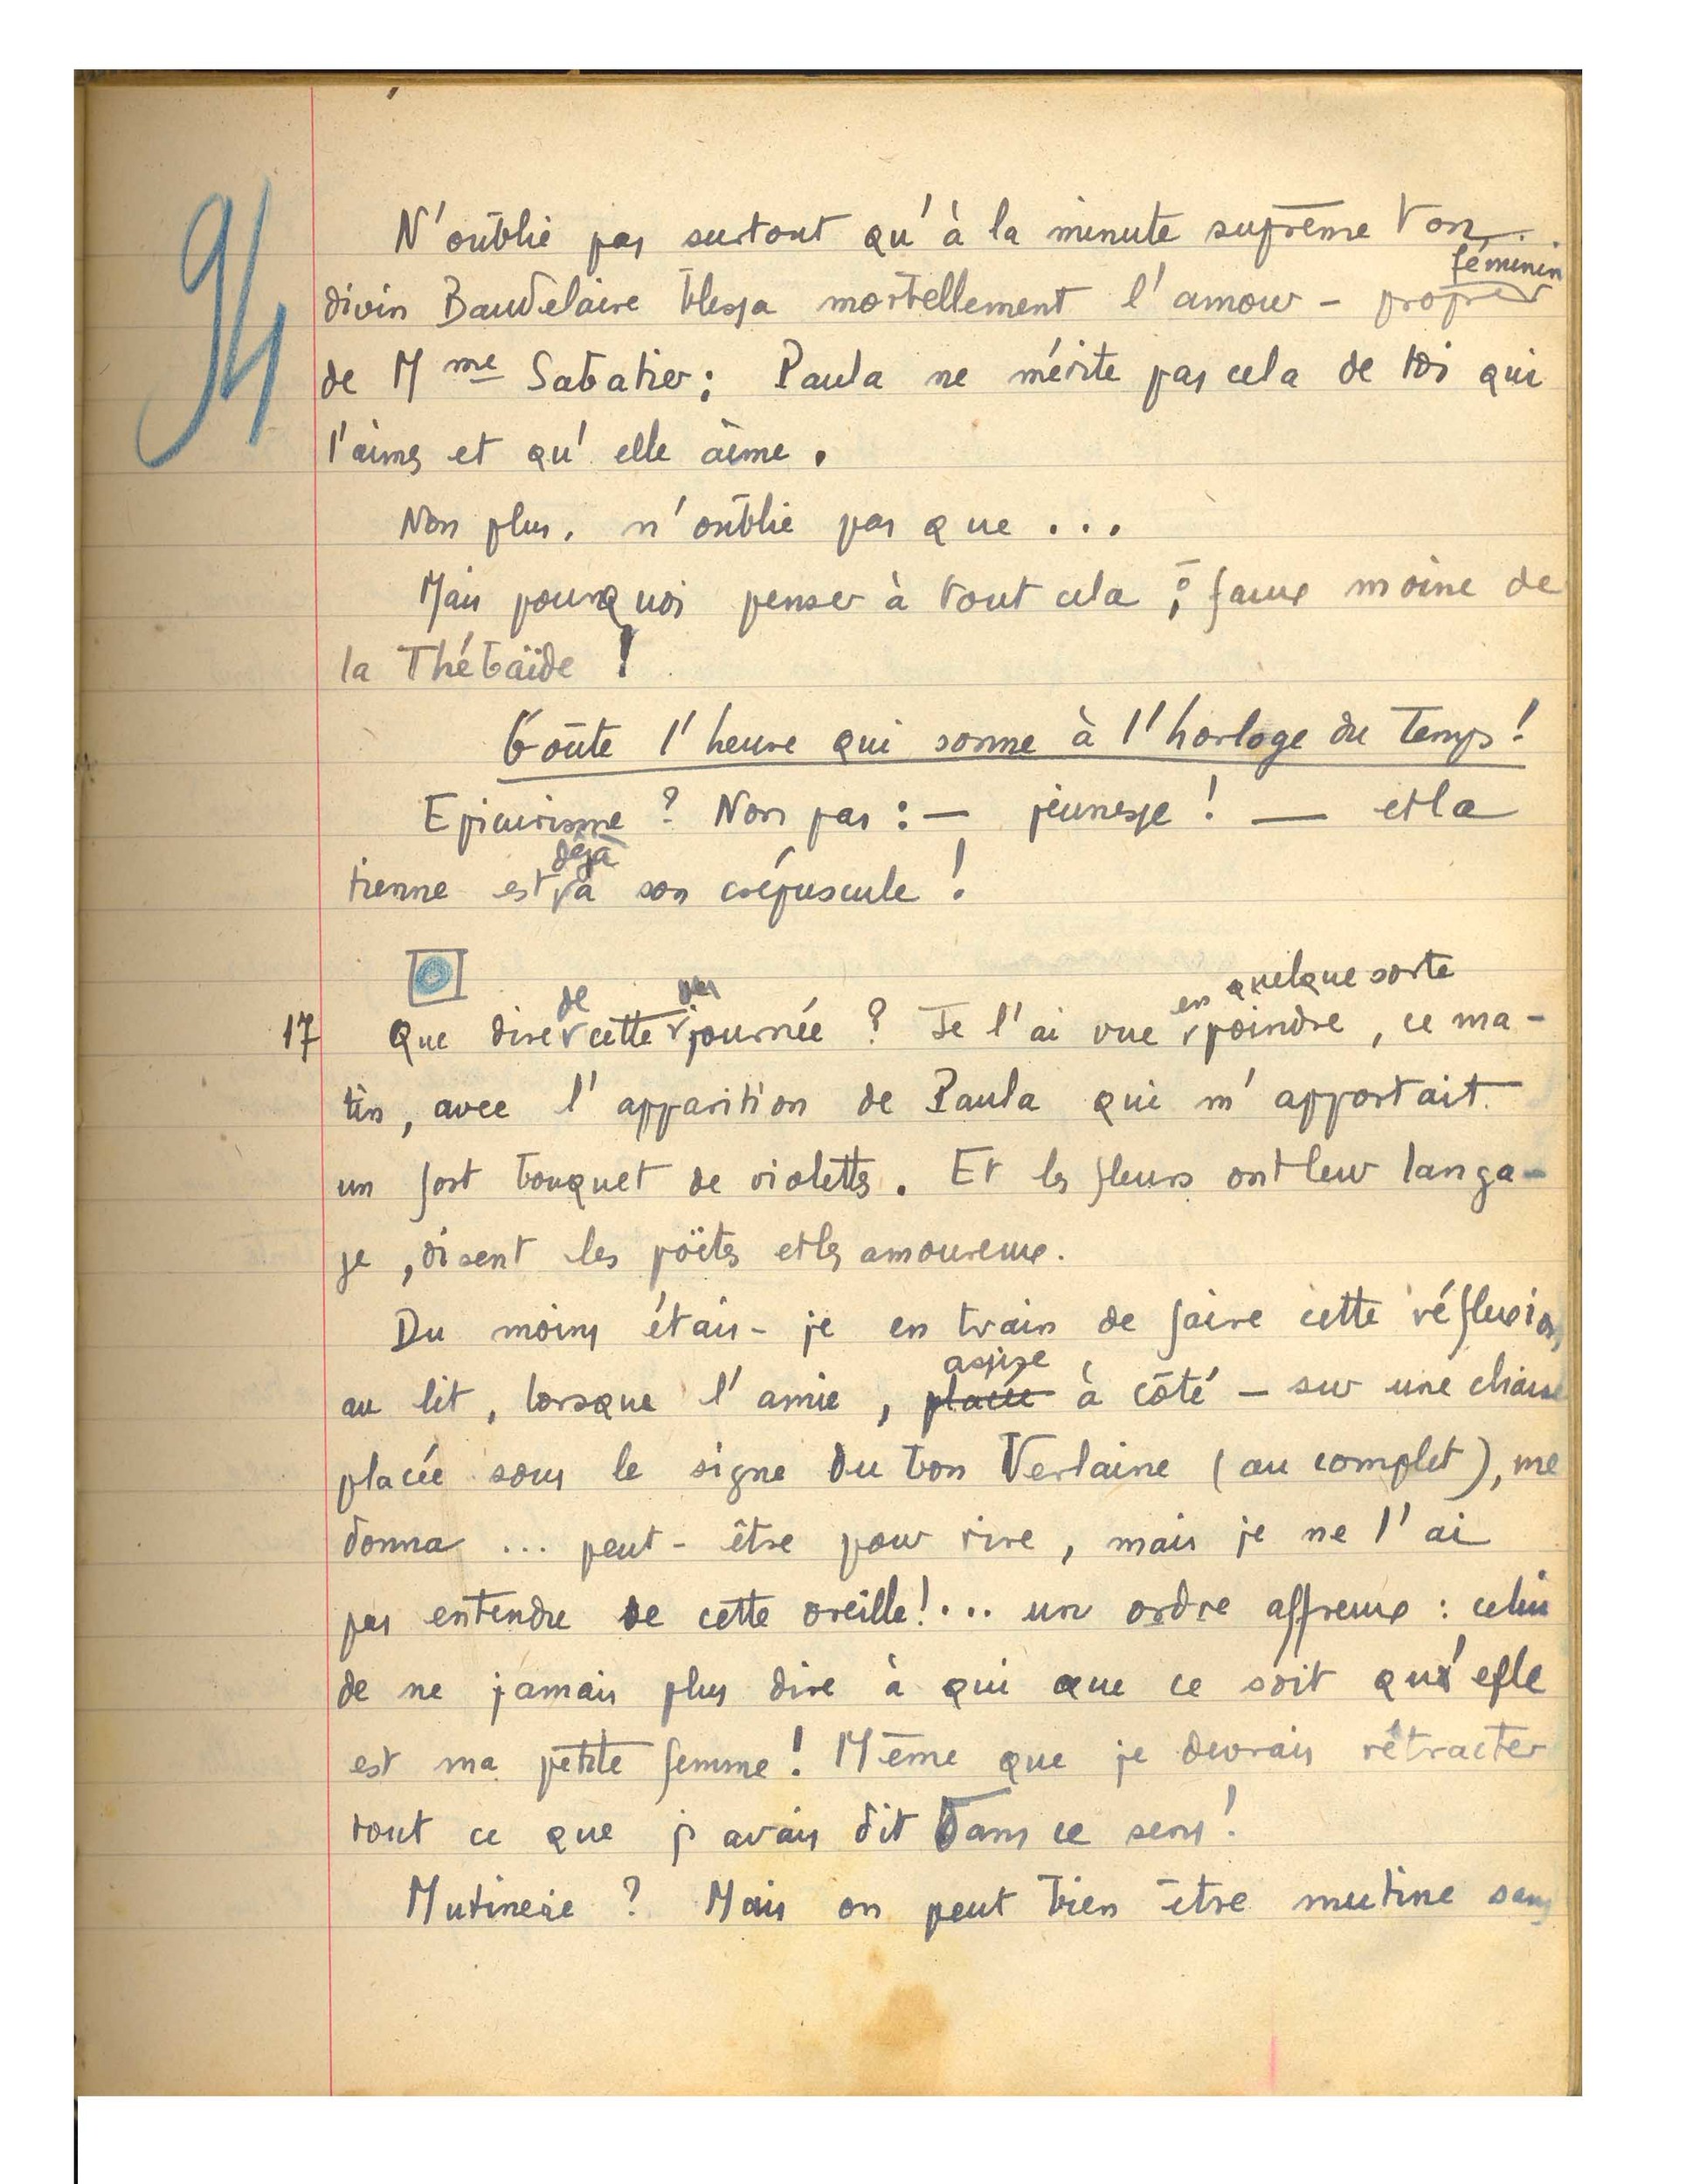 94
N'oublie pas surtout qu'à la minute suprême ton
divin Baudelaire blessa mortellement l'amour-propre féminin
de Mme Sabatier; Paula ne mérite pas cela de toi qui
l'aimes et qu'elle aime.
Non plus, n'oublie pas que...
Mais pourquoi penser à tout cela, ô faux moine de
la Thébaïde!
Goûte l'heure qui sonne à l'horloge du Temps!
Epicurisme? Non pas: — jeunesse! — et la
tienne est déjà à son crépuscule!
17 Que dire de cette journée? Je l'ai vue en quelque sorte poindre, ce ma-
tin, avec l'apparition de Paula qui m'apportait
un fort bouquet de violettes. Et les fleurs ont leur langa-
ge, disent les poëtes et les amoureux.
Du moins étais-je en train de faire cette réflexion,
au lit, lorsque l'amie, placée assise à côté - sur une chaise
placée sous le signe du bon Verlaine (au complet), me
donna ... peut-être pour rire, mais je ne l'ai
pas entendre de cette oreille!... un ordre affreux: celui
de ne jamais plus dire à qui que ce soit qu'elle
est ma petite femme! Même que je devrais rétracter
tout ce que j'avais dit dans ce sens!
Mutinerie? Mais on peut bien être mutine sans